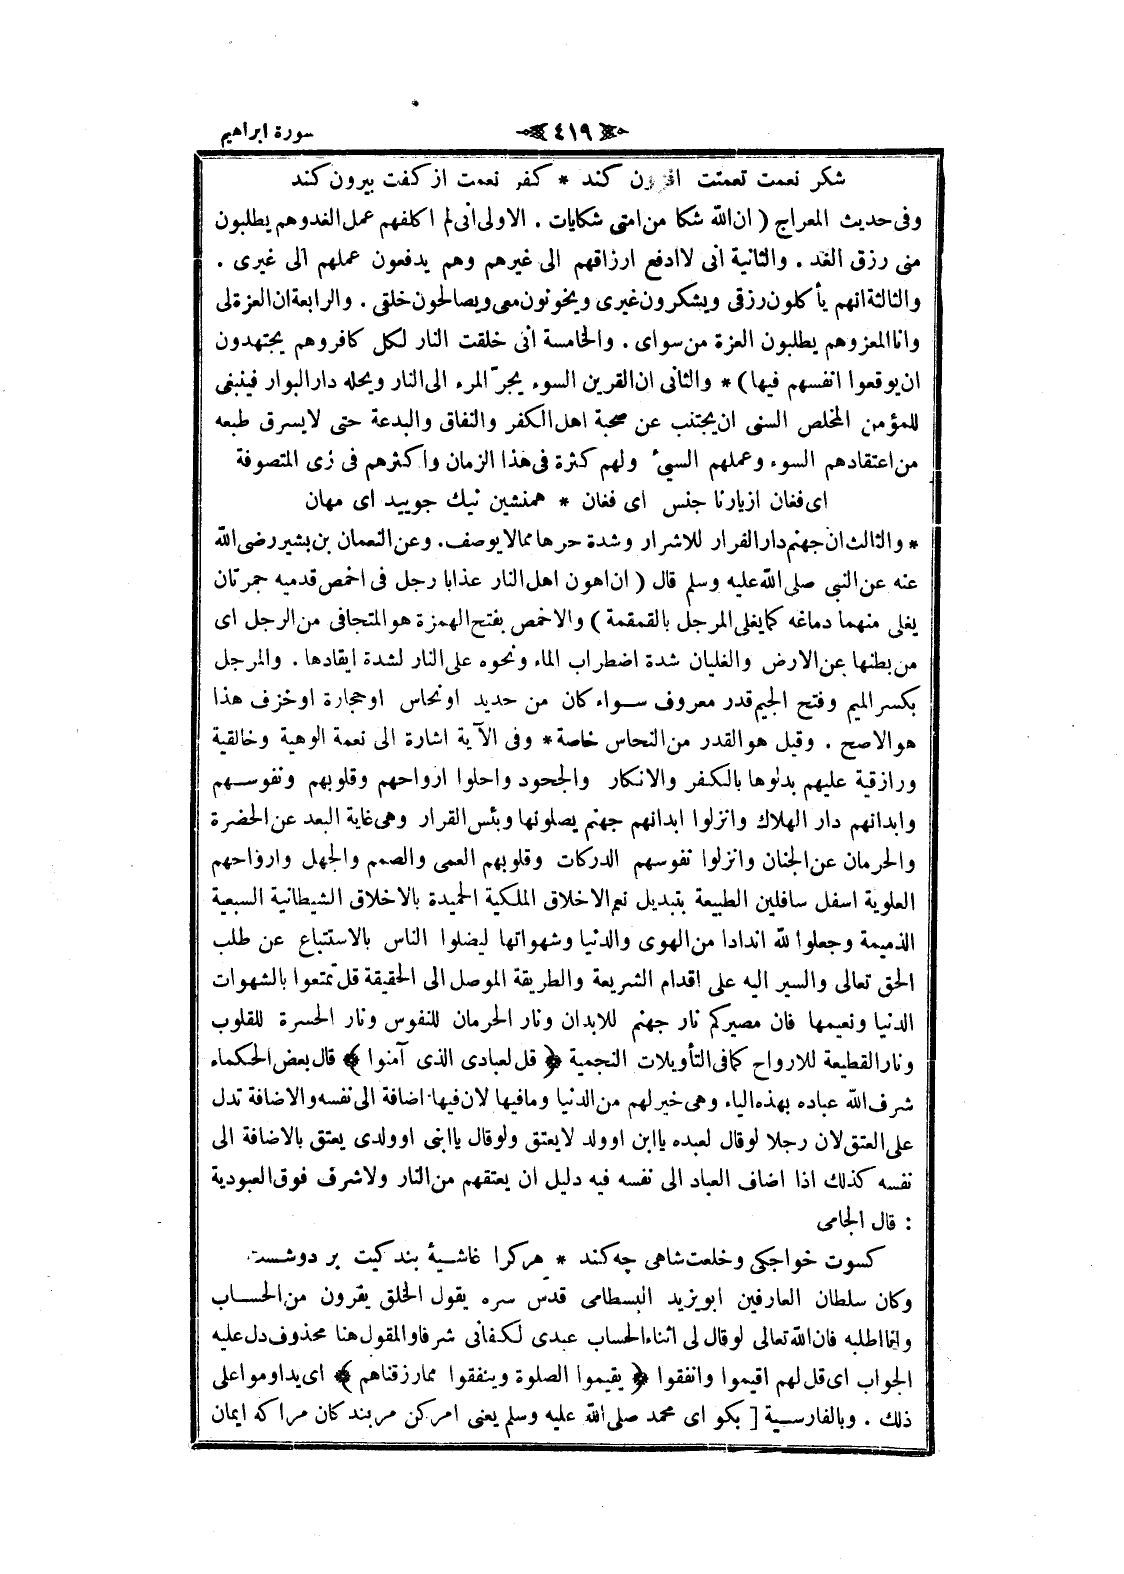 سورة ابراهيم
٤١٩
شكر نعمت نعمتت افزون كند * كفر نعمت از كفت بيرون كند
وفى حديث المعراج ( ان الله شكا من امتى شكايات . الاولى انى لم اكلفهم عمل الغد وهم يطلبون
منى رزق الغد . والثانية انى لا ادفع ارزاقهم الى غيرهم وهم يدفعون عملهم الى غيرى .
والثالثة انهم يأكلون رزقى ويشكرون غيرى ويخونون معى ويصالحون خلقى . والرابعة ان العزة لى
وانا المعز وهم يطلبون العزة من سواى . والخامسة انى خلقت النار لكل كافر وهم يجتهدون
ان يوقعوا انفسهم فيها ) * والثانى ان القرين السوء يجرّ المرء الى النار ويحله دار البوار فينبغى
للمؤمن المخلص السنى ان يجتنب عن صحبة اهل الكفر والنفاق والبدعة حتى لا يسرق طبعه
من اعتقادهم السوء وعملهم السيئ ولهم كثرة فى هذا الزمان واكثرهم فى زى المتصوفة
اى فغان ازيارنا جنس اى فغان * همنشين نيك جوييد اى مهان
* والثالث ان جهنم دار القرار للاشرار وشدة حرها مما لا يوصف . وعن النعمان بن بشير رضى الله
عنه عن النبى صلى الله عليه وسلم قال ( ان اهون اهل النار عذابا رجل فى اخمص قدميه جمرتان
يغلى منهما دماغه كما يغلى المرجل بالقمقمة ) والاخمص بفتح الهمزة هو المتجافى من الرجل اى
من بطنها عن الارض والغليان شدة اضطراب الماء ونحوه على النار لشدة ايقادها . والمرجل
بكسر الميم وفتح الجيم قدر معروف سواء كان من حديد او نحاس او حجارة او خزف هذا
هو الاصح . وقيل هو القدر من النحاس خاصة * وفى الآية اشارة الى نعمة الوهية وخالقية
ورازقية عليهم بدلوها بالكفر والانكار والجحود واحلوا ارواحهم وقلوبهم ونفوسهم
وابدانهم دار الهلاك وانزلوا ابدانهم جهنم يصلونها وبئس القرار وهى غاية البعد عن الحضرة
والحرمان عن الجنان وانزلوا نفوسهم الدركات وقلوبهم العمى والصمم والجهل وارواحهم
العلوية اسفل سافلين الطبيعة بتبديل نعم الاخلاق الملكية الحميدة بالاخلاق الشيطانية السبعية
الذميمة وجعلوا لله اندادا من الهوى والدنيا وشهواتها ليضلوا الناس بالاستتباع عن طلب
الحق تعالى والسير اليه على اقدام الشريعة والطريقة الموصل الى الحقيقة قل تمتعوا بالشهوات
الدنيا ونعيمها فان مصيركم نار جهنم للابدان ونار الحرمان للنفوس ونار الحسرة للقلوب
ونار القطيعة للارواح كما فى التأويلات النجمية ﴿ قل لعبادى الذى آمنوا ﴾ قال بعض الحكماء
شرف الله عباده بهذه الياء وهى خير لهم من الدنيا وما فيها لان فيها اضافة الى نفسه والاضافة تدل
على العتق لان رجلا لو قال لعبده يا ابن او ولد لا يعتق ولو قال يا ابنى او ولدى يعتق بالاضافة الى
نفسه كذلك اذا اضاف العباد الى نفسه فيه دليل ان يعتقهم من النار ولا شرف فوق العبودية
: قال الجامى
كسوت خواجكى وخلعت شاهى چه كند * هر كرا غاشيۀ بندكيت بر دوشست
وكان سلطان العارفين ابو يزيد البسطامى قدّس سره يقول الخلق يفرون من الحساب
وانما اطلبه فان الله تعالى لو قال لى اثناء الحساب عبدى لكفانى شرفا والمقول هنا محذوف دل عليه
الجواب اى قل لهم اقيموا وانفقوا ﴿ يقيموا الصلوة وينفقوا مما رزقناهم ﴾ اى يداوموا على
ذلك . وبالفارسية [ بكو اى محمد صلى الله عليه وسلم يعنى امر كن مر بندكان مرا كه ايمان